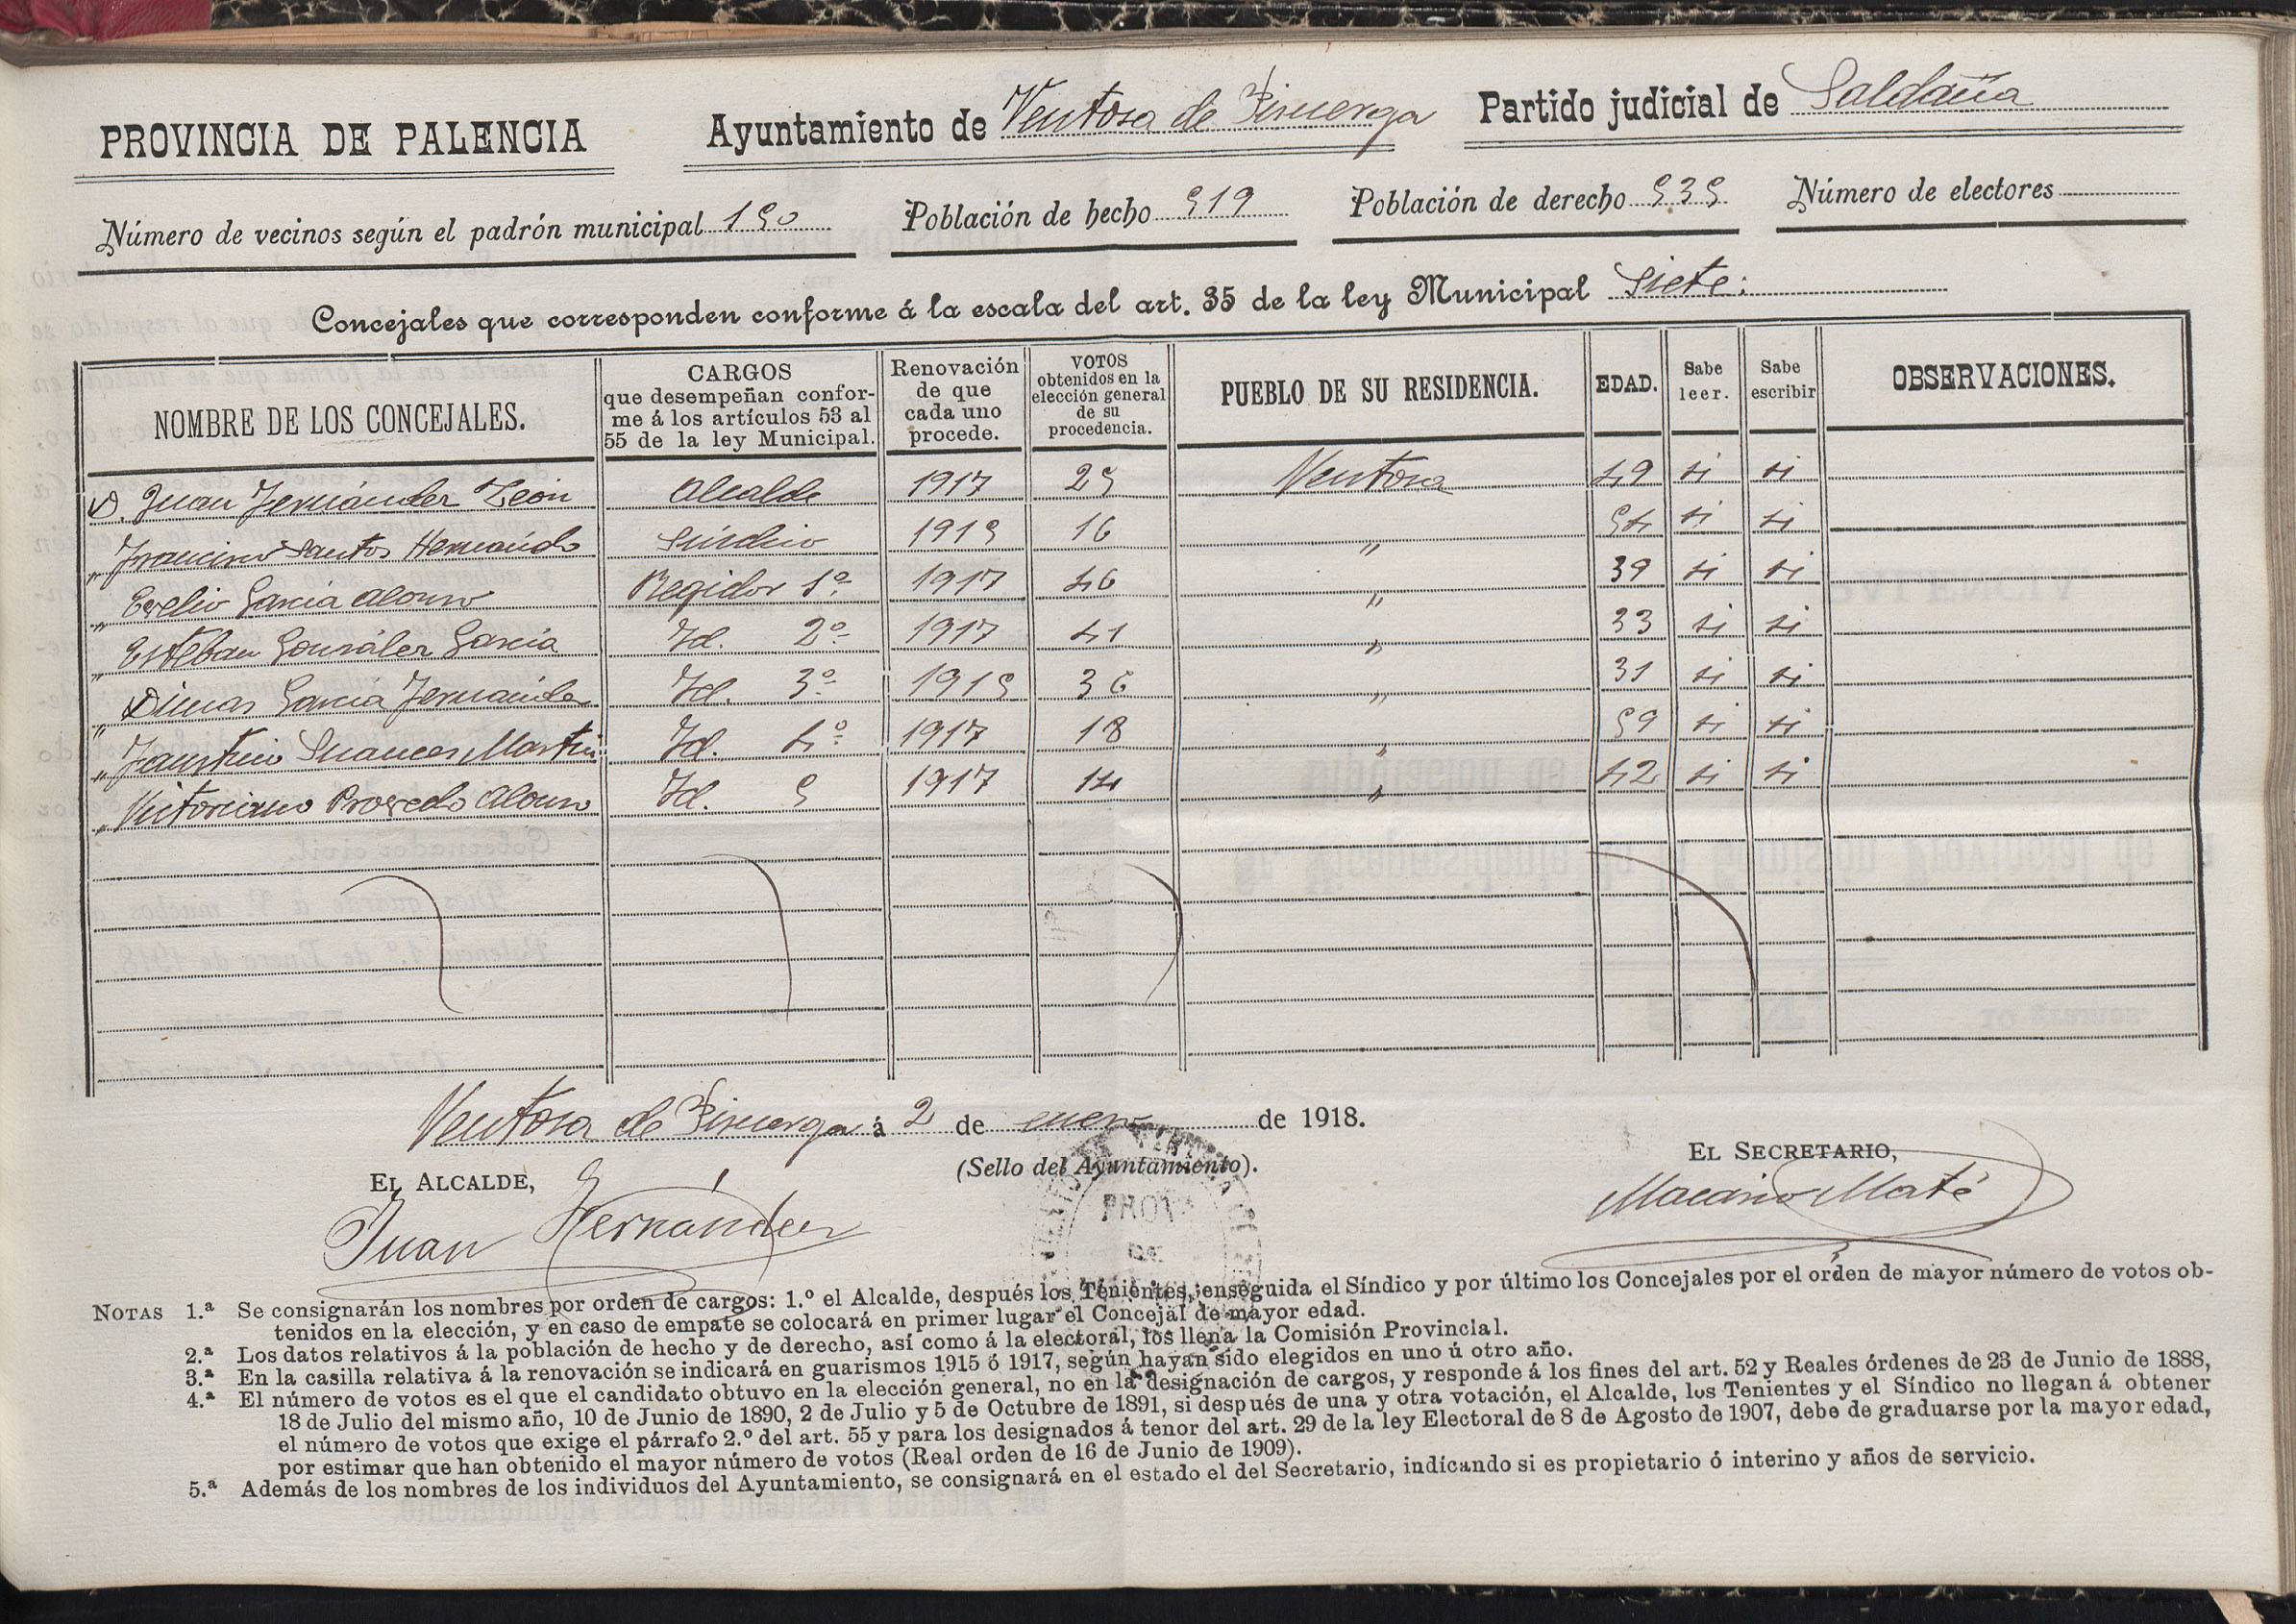 PROVINCIA DE PALENCIA Ayuntamiento de Ventosa de Pisuerga Partido judicial de Saldaña
Número de vecinos según el padrón municipal 150 Población de hecho 519 Población de derecho 535 Número de electores
Concejales que corresponden conforme á la escala del art. 35 de la ley Municipal Siete:
NOMBRE DE LOS CONCEJALES. CARGOS que desempeñan conforme á los artículos 53 al 55 de la ley Municipal. Renovación de que cada uno procede. VOTOS obtenidos en la elección general de su procedencia. PUEBLO DE SU RESIDENCIA. EDAD. Sabe leer. Sabe escribir OBSERVACIONES.
D. Juan Fernández León Alcalde 1917 25 Ventosa 49 si si
" Francisco Santos Hernando Síndico 1915 16 " 54 si si
" Evelio García Alonso Regidor 1º 1917 46 " 39 si si
" Esteban González García Id. 2º 1917 41 " 33 si si
" Dimas García Fernández Id. 3º 1915 36 " 31 si si
" Faustino Suances Martín Id. 4º 1917 18 " 59 si si
" Victoriano Provedo Alonso Id. 5 1917 14 " 42 si si
Ventosa de Pisuerga á 2 de enero de 1918.
(Sello del Ayuntamiento).
EL ALCALDE, EL SECRETARIO,
Juan Hernández Macario Maté
PROVA
DE
NOTAS 1.ª Se consignarán los nombres por orden de cargos: 1.º el Alcalde, después los Tenientes, enseguida el Síndico y por último los Concejales por el orden de mayor número de votos ob-
tenidos en la elección, y en caso de empate se colocará en primer lugar el Concejal de mayor edad.
2.ª Los datos relativos á la población de hecho y de derecho, así como á la electoral, los llena la Comisión Provincial.
3.ª En la casilla relativa á la renovación se indicará en guarismos 1915 ó 1917, según hayan sido elegidos en uno ú otro año.
4.ª El número de votos es el que el candidato obtuvo en la elección general, no en la designación de cargos, y responde á los fines del art. 52 y Reales órdenes de 23 de Junio de 1888,
18 de Julio del mismo año, 10 de Junio de 1890, 2 de Julio y 5 de Octubre de 1891, si después de una y otra votación, el Alcalde, los Tenientes y el Síndico no llegan á obtener
el número de votos que exige el párrafo 2.º del art. 55 y para los designados á tenor del art. 29 de la ley Electoral de 8 de Agosto de 1907, debe de graduarse por la mayor edad,
por estimar que han obtenido el mayor número de votos (Real orden de 16 de Junio de 1909).
5.ª Además de los nombres de los individuos del Ayuntamiento, se consignará en el estado el del Secretario, indicando si es propietario ó interino y años de servicio.